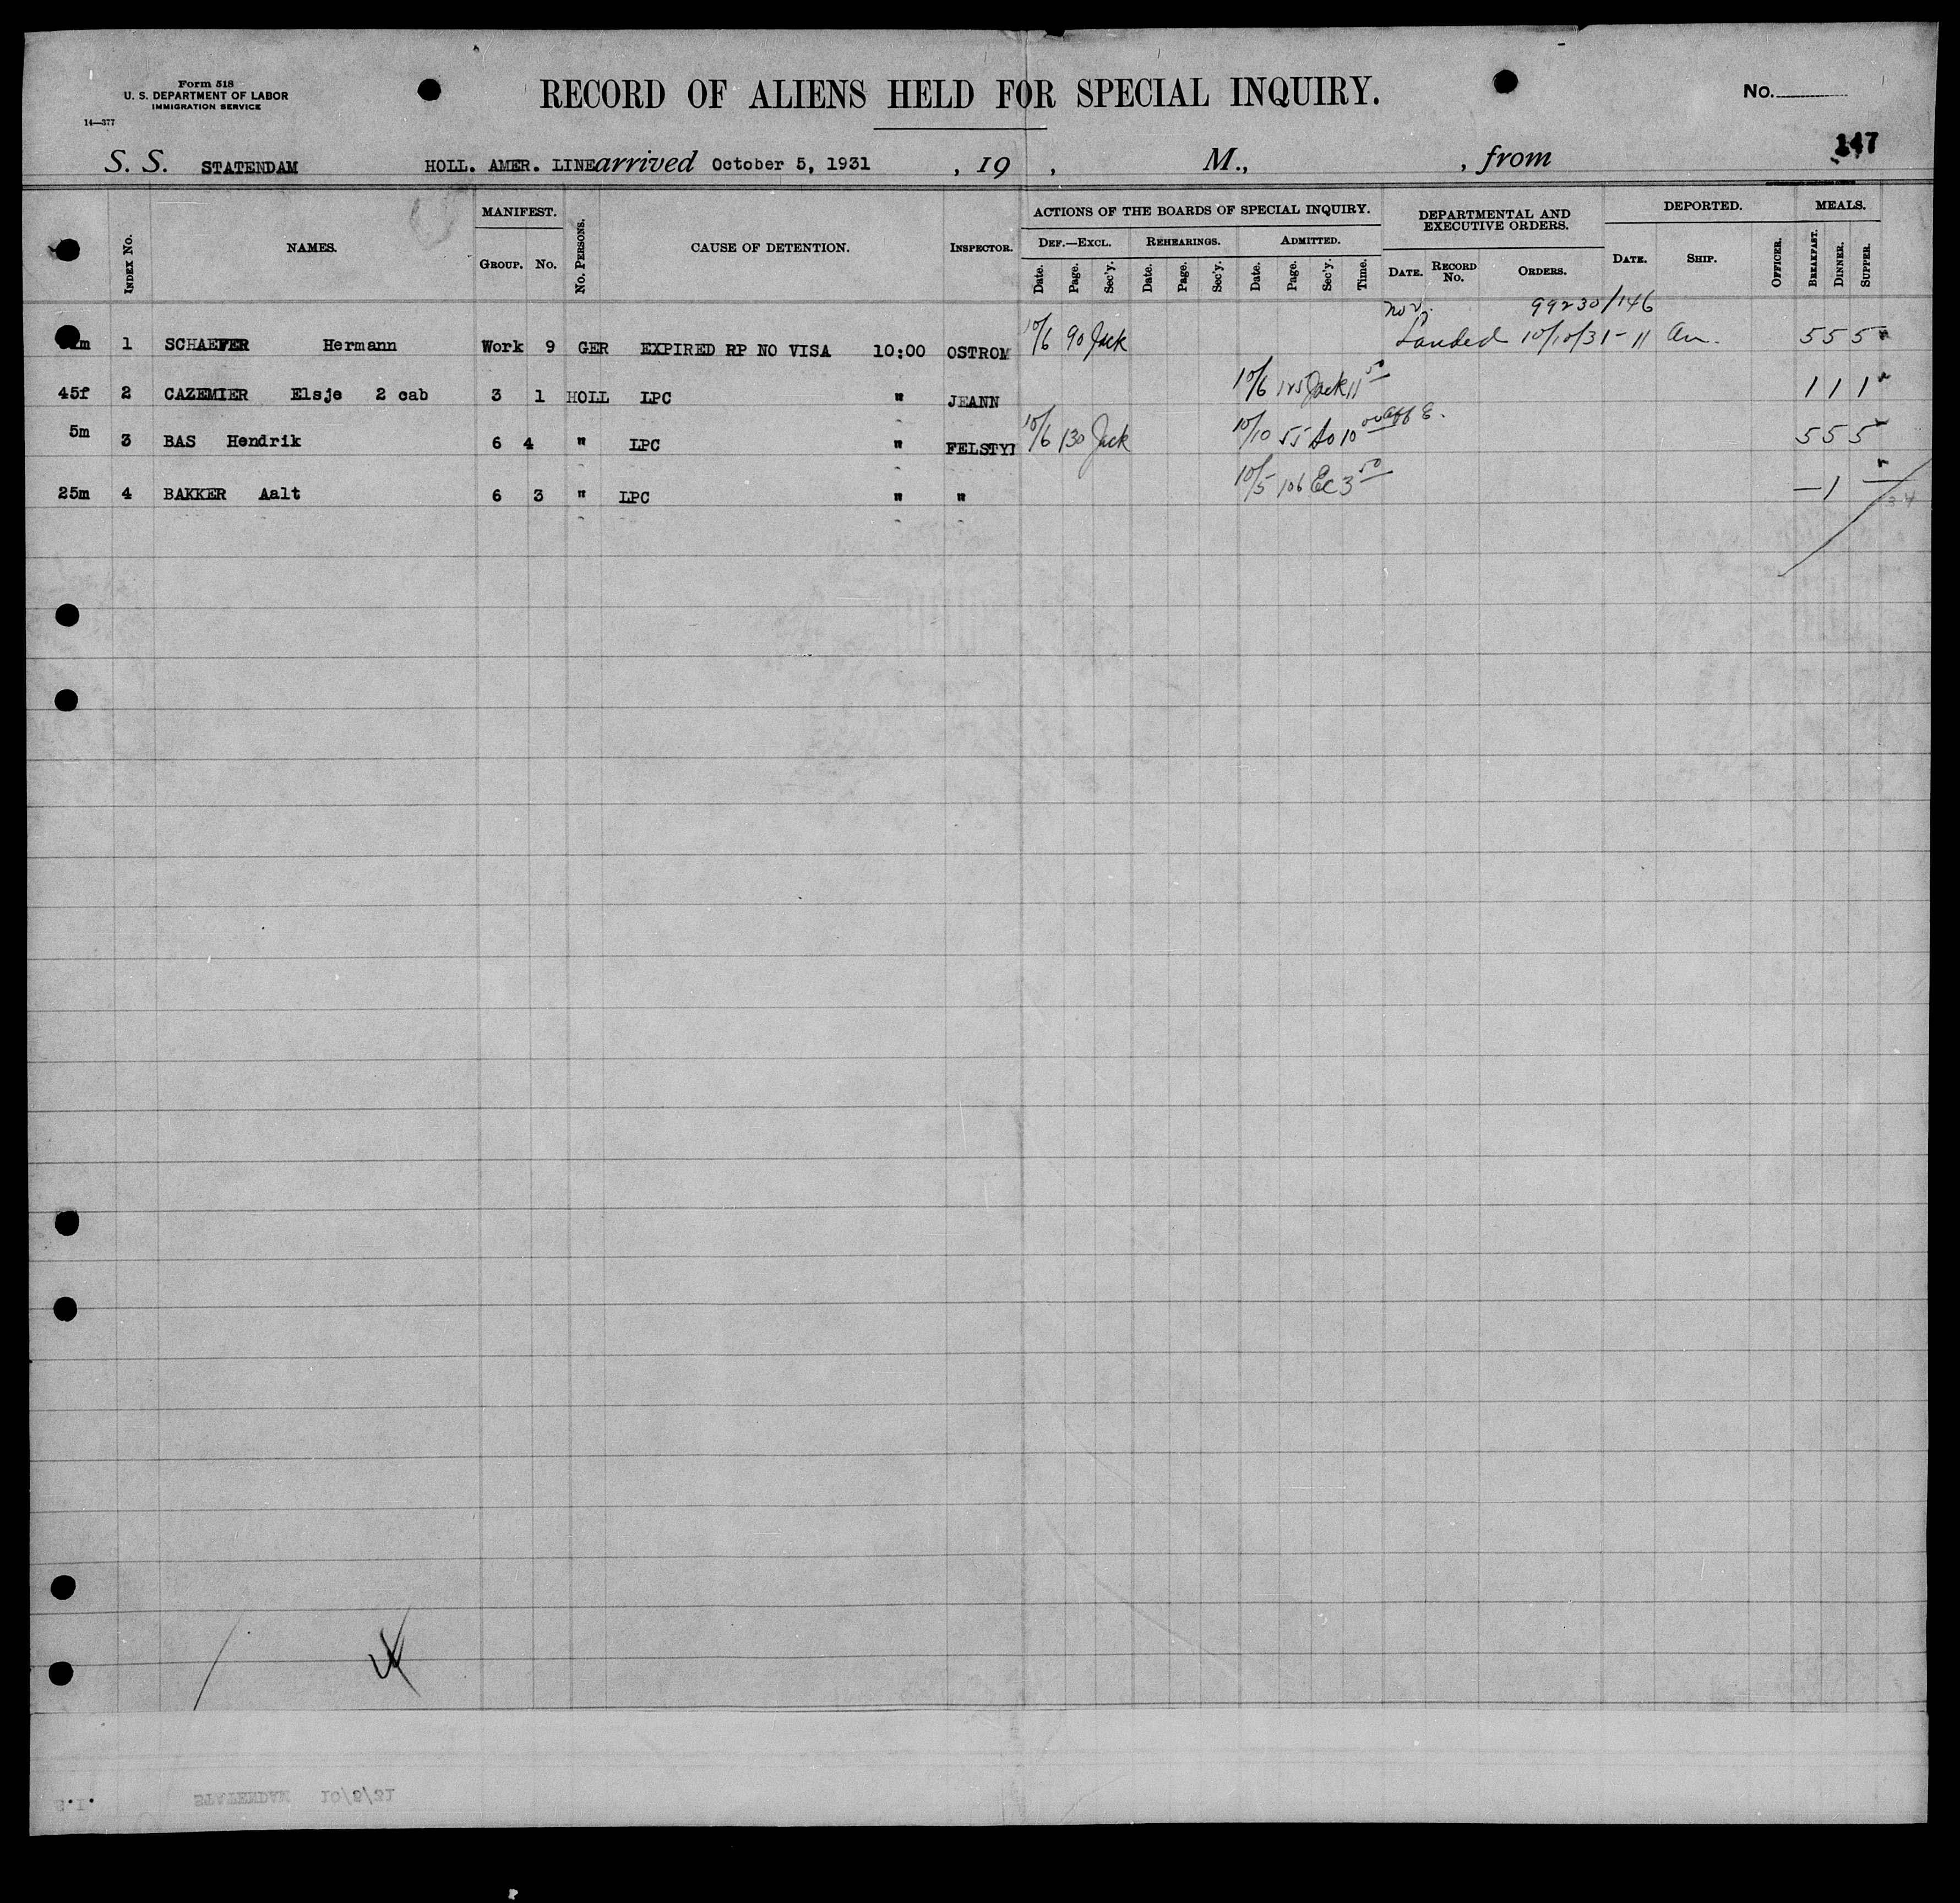 Form 518
U. S. DEPARTMENT OF LABOR
IMMIGRATION SERVICE
14—377
RECORD OF ALIENS HELD FOR SPECIAL INQUIRY.
No.
147
S. S. STATENDAM HOLL. AMER. LINE arrived October 5, 1931 , 19 , M., , from
INDEX No. NAMES. MANIFEST. GROUP. No. No. PERSONS. CAUSE OF DETENTION. INSPECTOR.
ACTIONS OF THE BOARDS OF SPECIAL INQUIRY. DEF.—EXCL. REHEARINGS. ADMITTED.
Date. Page. Sec'y. Date. Page. Sec'y. Date. Page. Sec'y. Time.
DEPARTMENTAL AND EXECUTIVE ORDERS. DATE. RECORD No. ORDERS.
DEPORTED. DATE. SHIP. OFFICER.
MEALS. BREAKFAST. DINNER. SUPPER.
99230/146
m 1 SCHAEFER Hermann Work 9 GER EXPIRED RP NO VISA 10:00 OSTROM 10/6 90 Jack Landed 10/10/31 - 11 am. 5 5 5
45f 2 CAZEMIER Elsje 2 cab 3 1 HOLL LPC " JEANN 10/6 125 Jack 11 50 1 1 1
5m 3 BAS Hendrik 6 4 " LPC " FELSTYI 10/6 130 Jack 10/10 55 10 5 5 5
25m 4 BAKKER Aalt 6 3 " LPC " " 10/5 106 Ec 3 50 — 1 —
S.I. STATENDAM 10/5/31